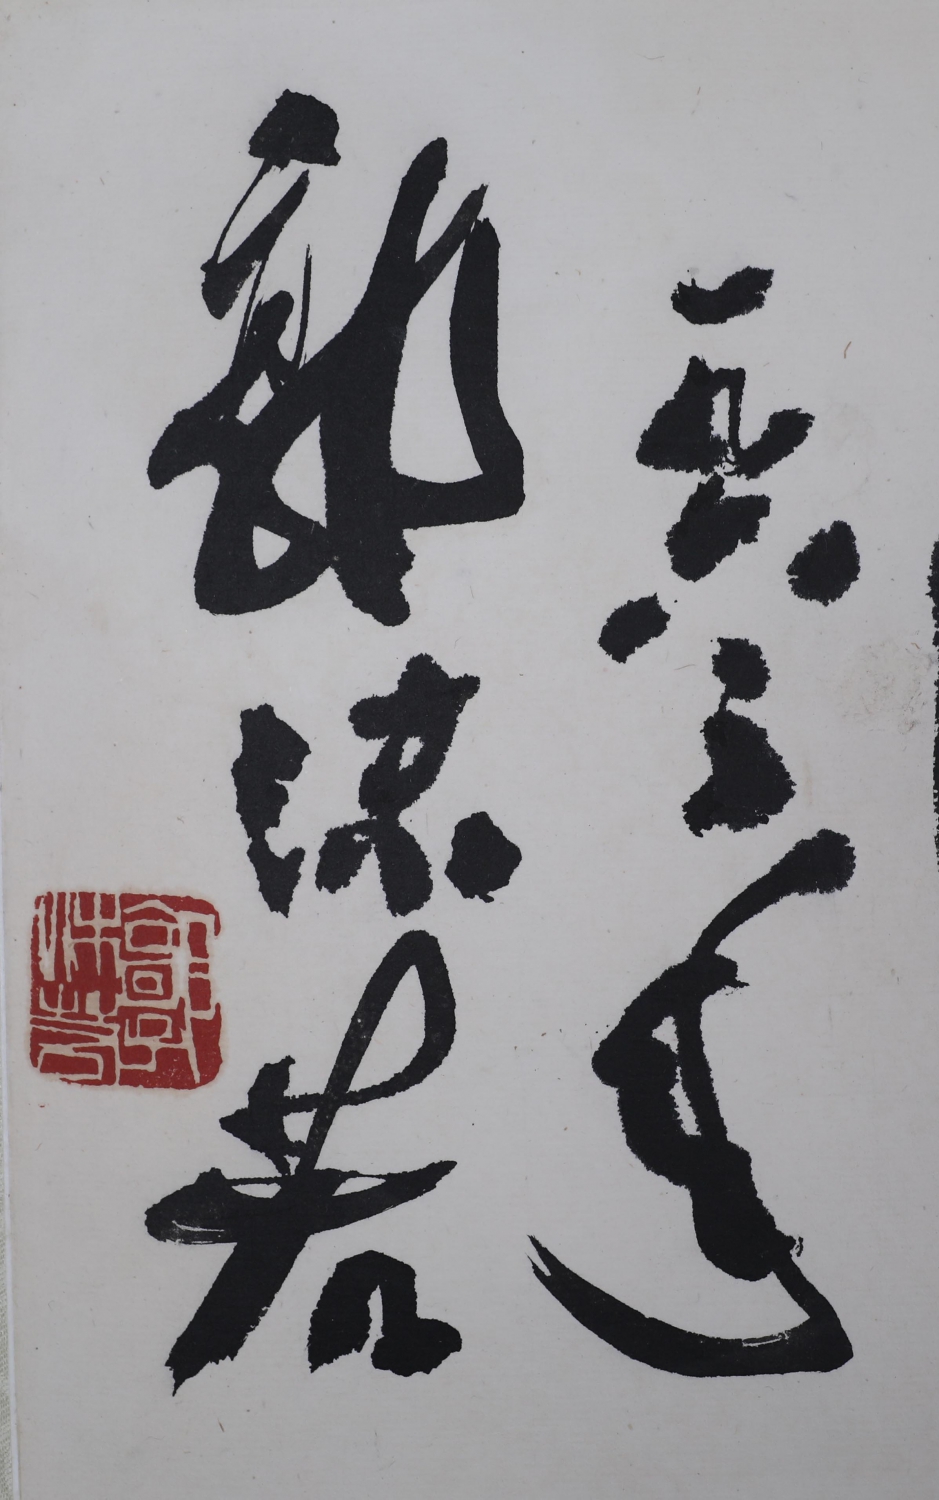 一九六三年
郭沫若